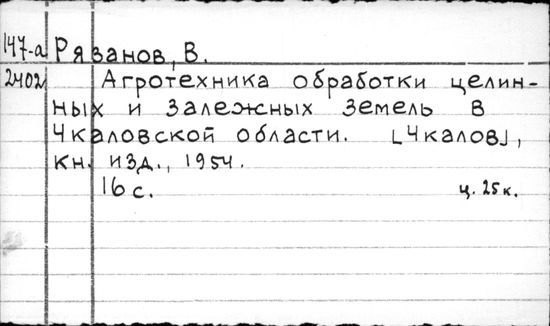 147-а Рязанов, В.
2402 Агротехника обработки целин-
ных и залежных земель в
Чкаловской области. [Чкалов],
Кн. изд., 1954.
16 с. ц. 25к.